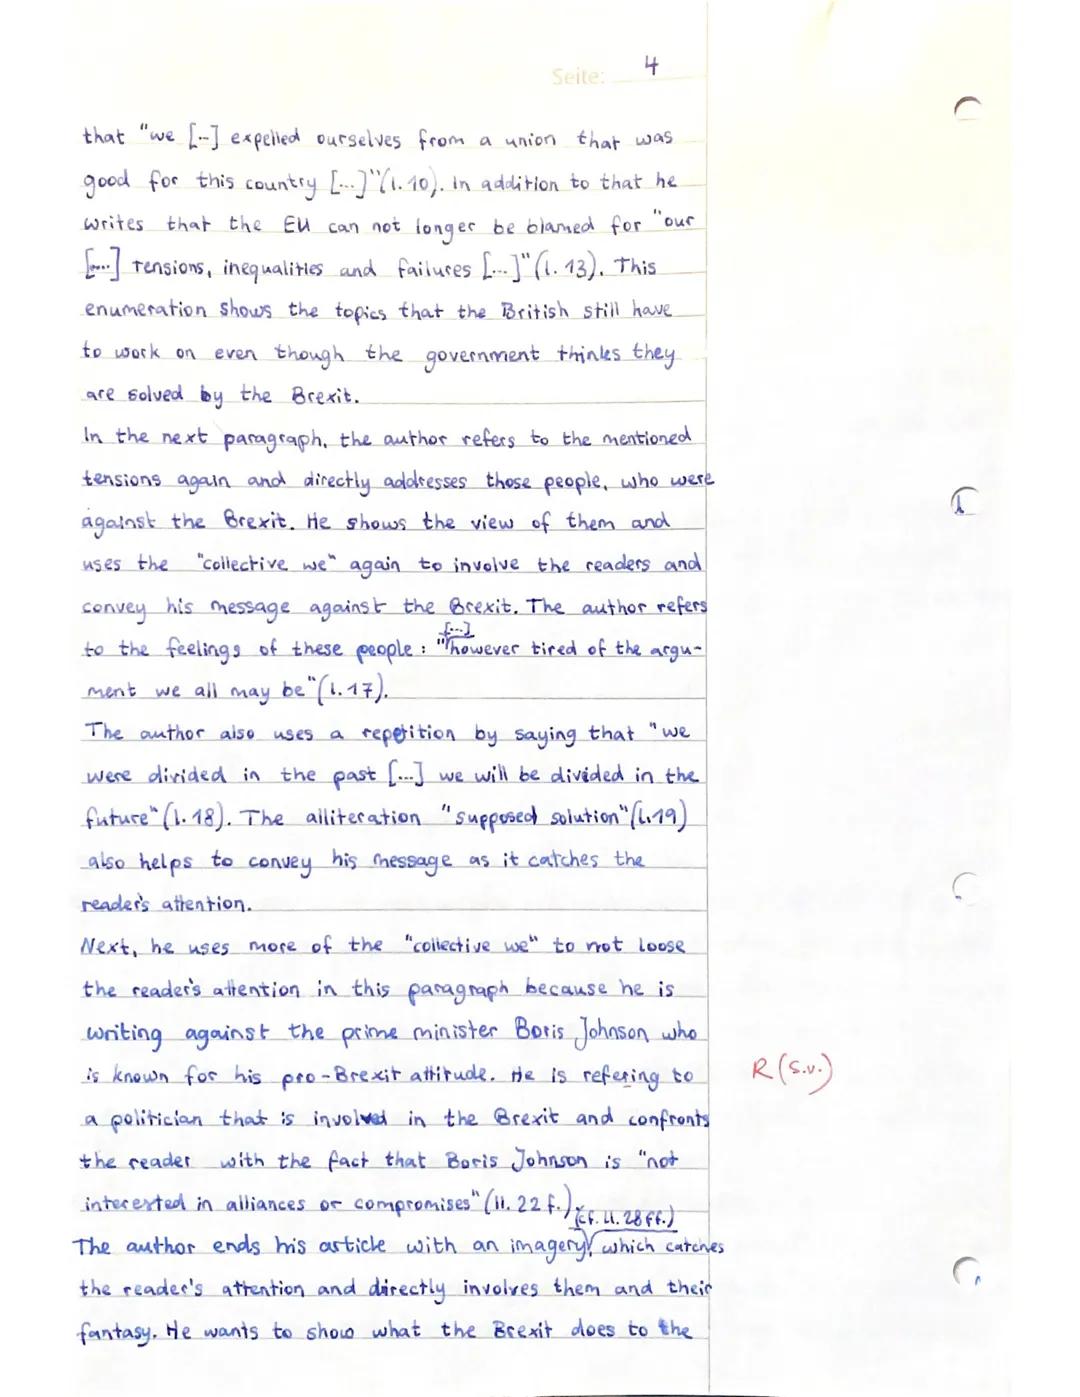 Seite: 4
that "we [...] expelled ourselves from a union that was
good for this country [...]" (l. 10). In addition to that he
writes that the EU can not longer be blamed for "our
[...] tensions, inequalities and failures [...]" (l. 13). This
enumeration shows the topics that the British still have
to work on even though the government thinks they
are solved by the Brexit.
In the next paragraph, the author refers to the mentioned
tensions again and directly addresses those people, who were
against the Brexit. He shows the view of them and
uses the "collective we" again to involve the readers and
convey his message against the Brexit. The author refers
to the feelings of these people: "[...] however tired of the argu-
ment we all may be" (l. 17).
The author also uses a repetition by saying that "we
were divided in the past [...] we will be divided in the
future" (l. 18). The alliteration "supposed solution" (l. 19)
also helps to convey his message as it catches the
reader's attention.
Next, he uses more of the "collective we" to not loose
the reader's attention in this paragraph because he is
writing against the prime minister Boris Johnson who
is known for his pro-Brexit attitude. He is refering to
R (s.v.)
a politician that is involved in the Brexit and confronts
the reader with the fact that Boris Johnson is "not
interested in alliances or compromises" (ll. 22 f.).
The author ends his article with an imagery (cf. ll. 28 ff.) which catches
the reader's attention and directly involves them and their
fantasy. He wants to show what the Brexit does to the